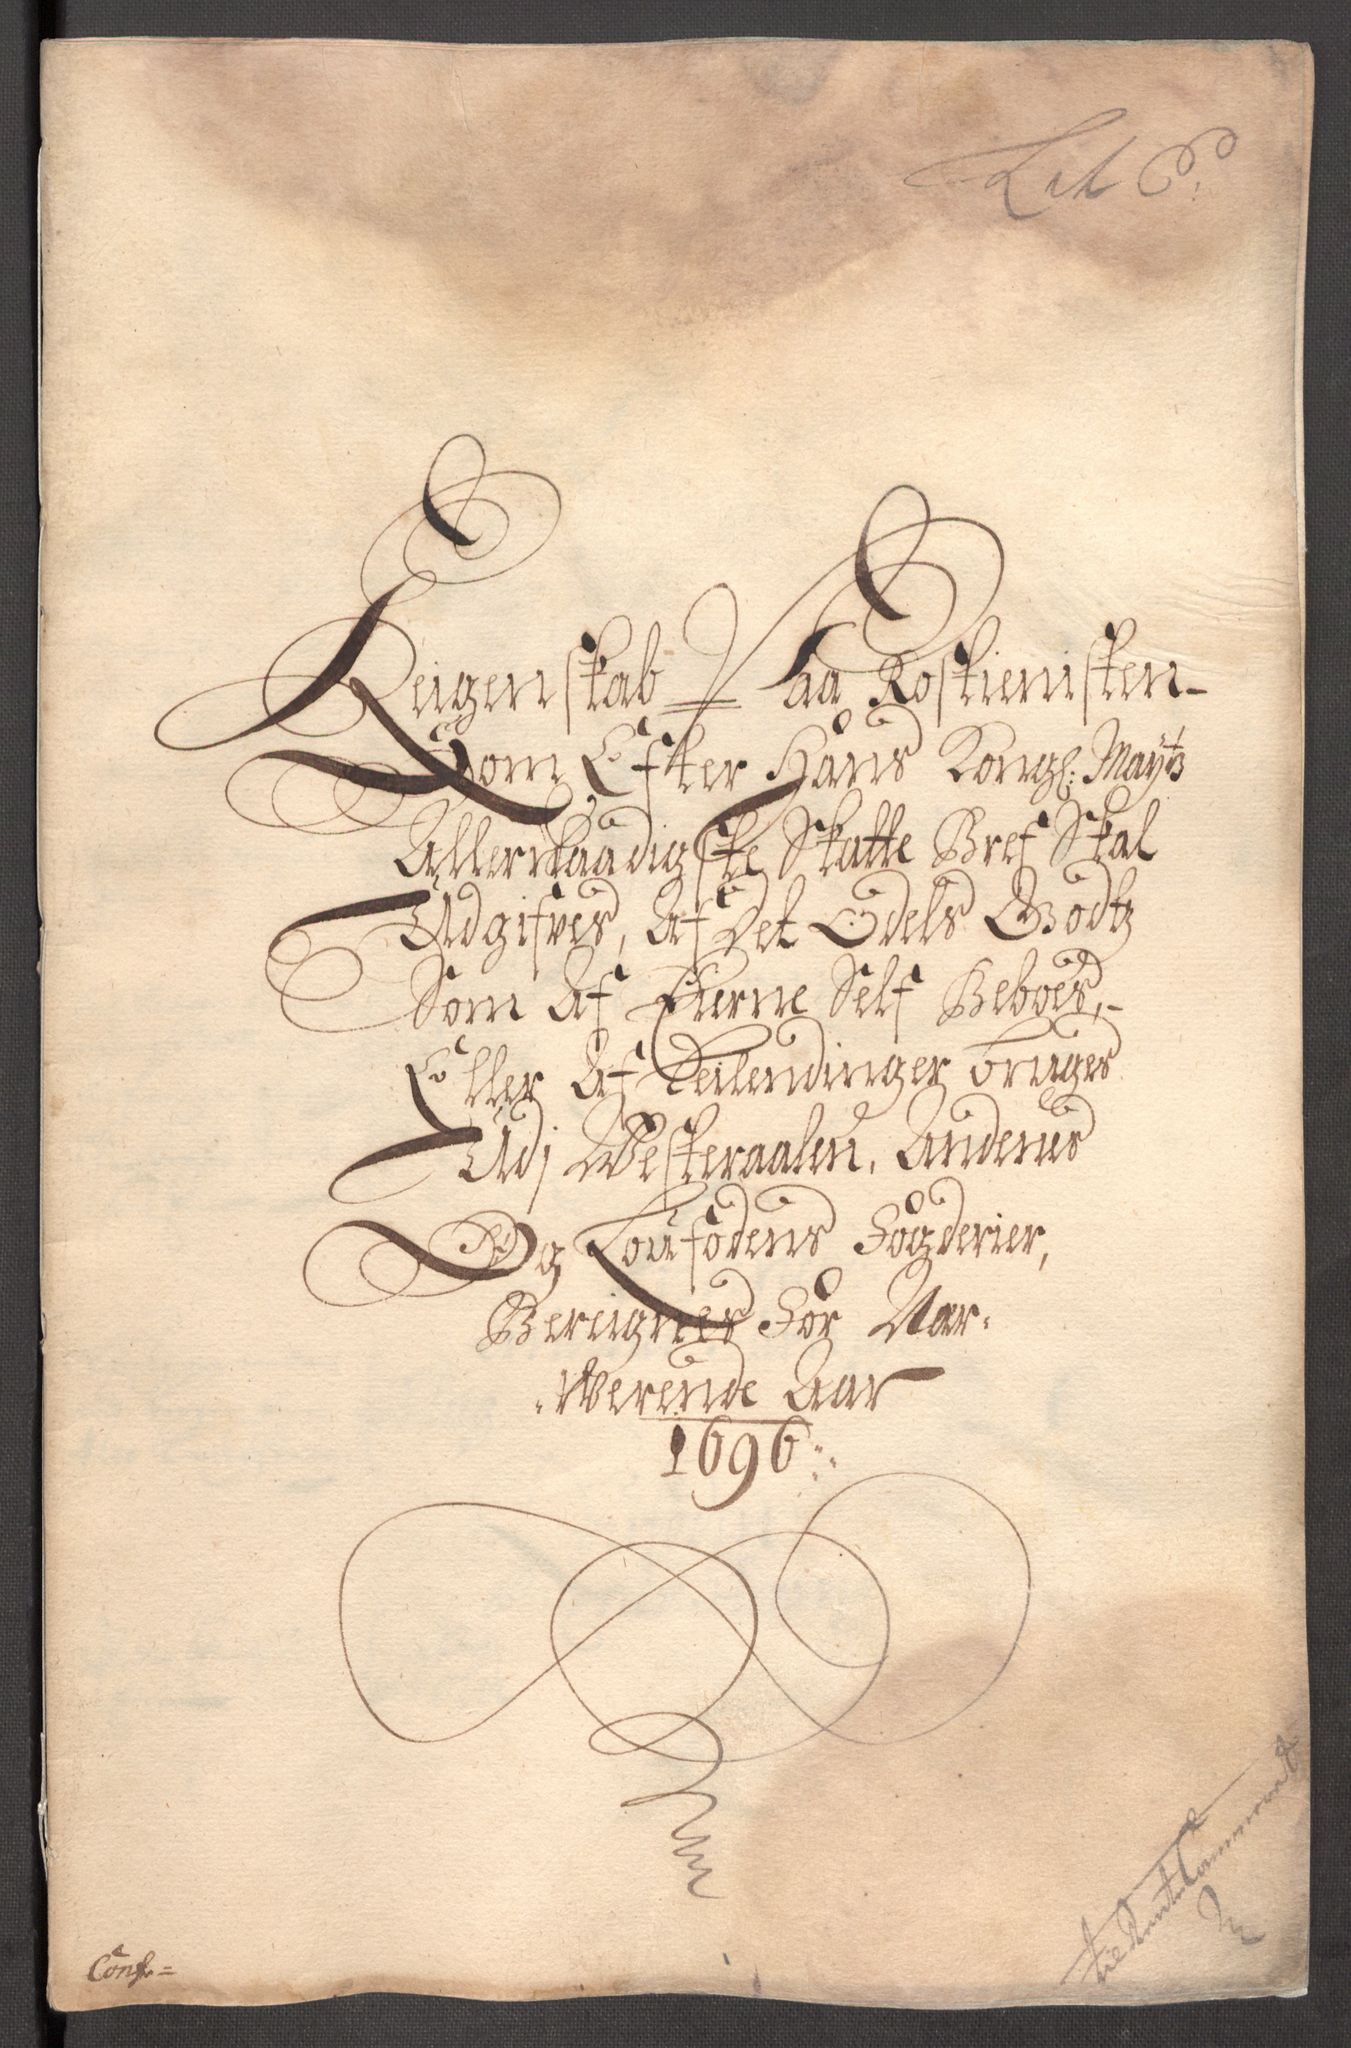 Lit P:
Reigenskab Paa Rostienisten
Som Efter Hans Kongl: Mayts
Allernaadigste Skatte Bref Skal
Udgifves, Af Det Odels Godtz
Som Af Eierne Self Beboes,
Eller Af Leilendinger bruges
Udj Westeraalen, Andenes
Og Loufodens Fogderier,
Bereignes For Nær-
werende Aar
1696
Conf=